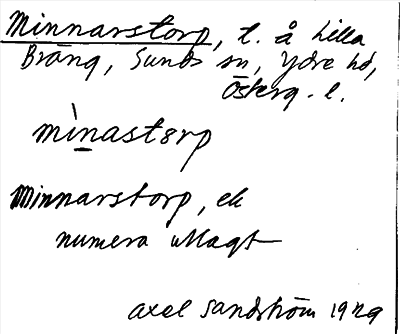 Minnarstorp, t. å Lilla
Bräng, Sunds sn, Ydre hd,
Österg. l.
mìnastɵrp
Minnarstorp, ek
numera utlagt
Axel Sandström 1929